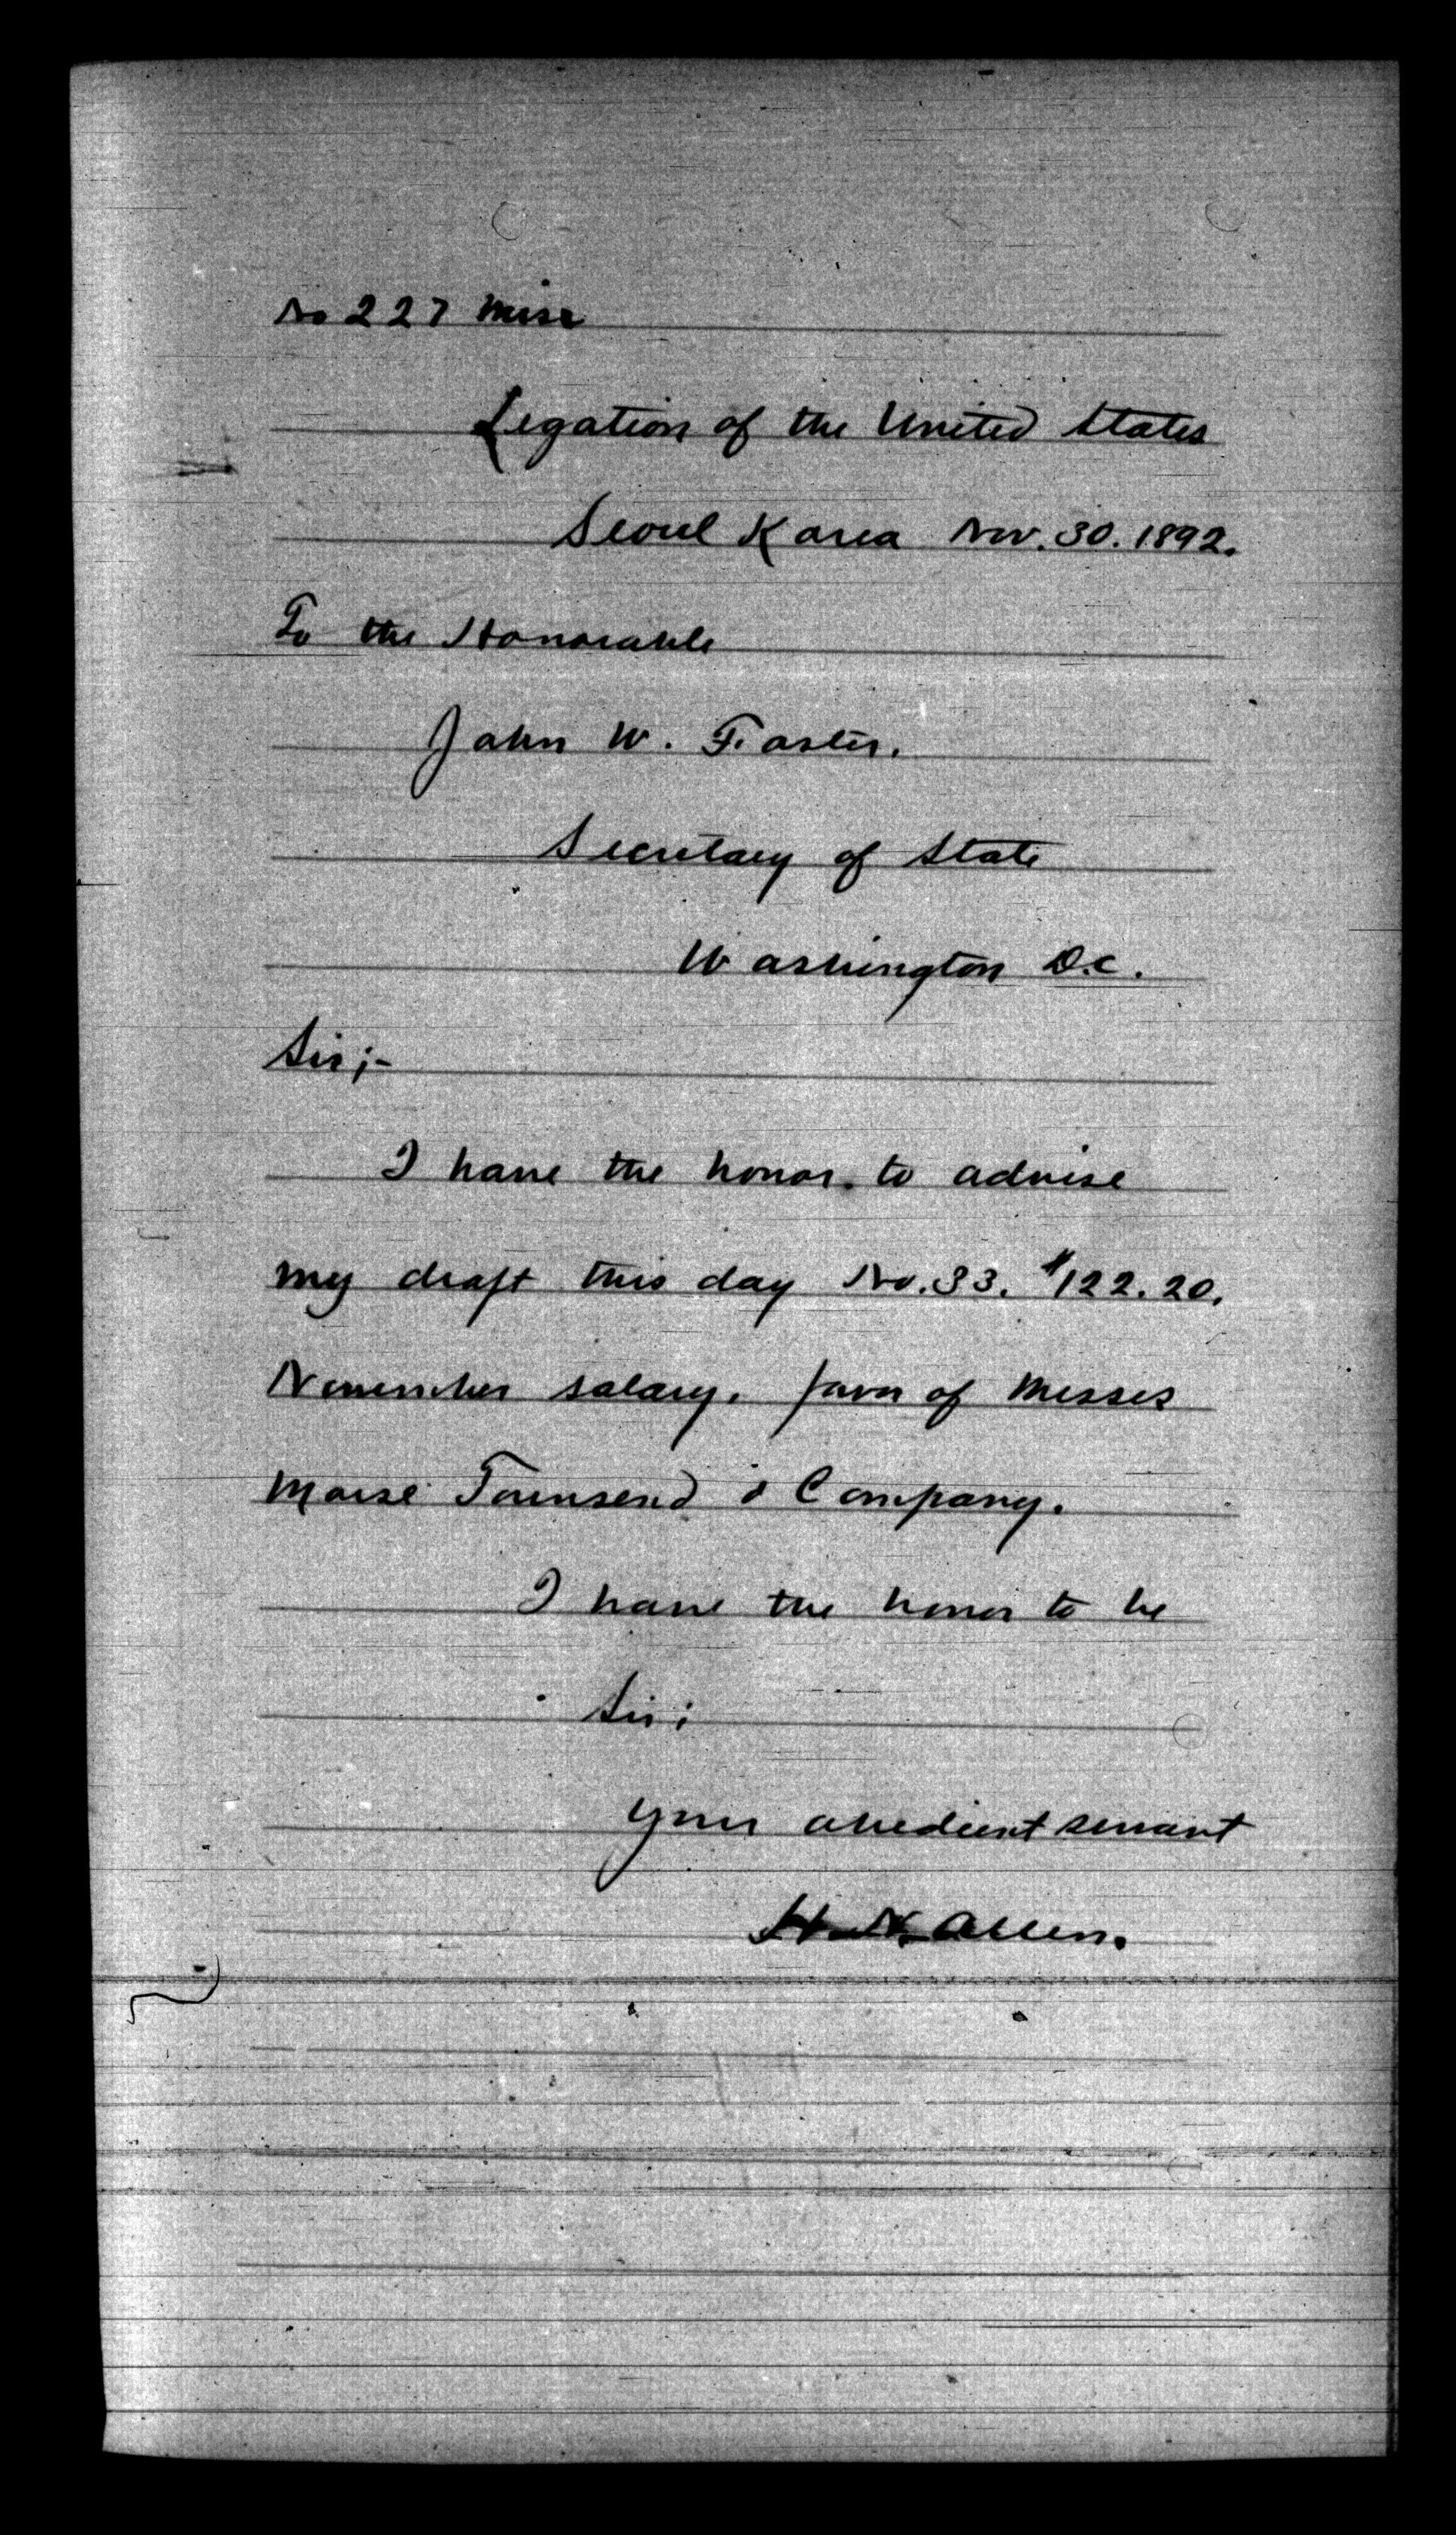 No 227 Misc
Legation of the United States
Seoul Korea Nov. 30. 1892.
To the Honorable
John W. Foster.
Secretary of State
Washington D.C.
Sir;-
I have the honor. to advise
my draft this day No. 33. $122.20.
November salary. favor of Messes
Morse Townsend & Company.
I have the honor to be
Sir;
Your obedient servant
H. N. Allen.